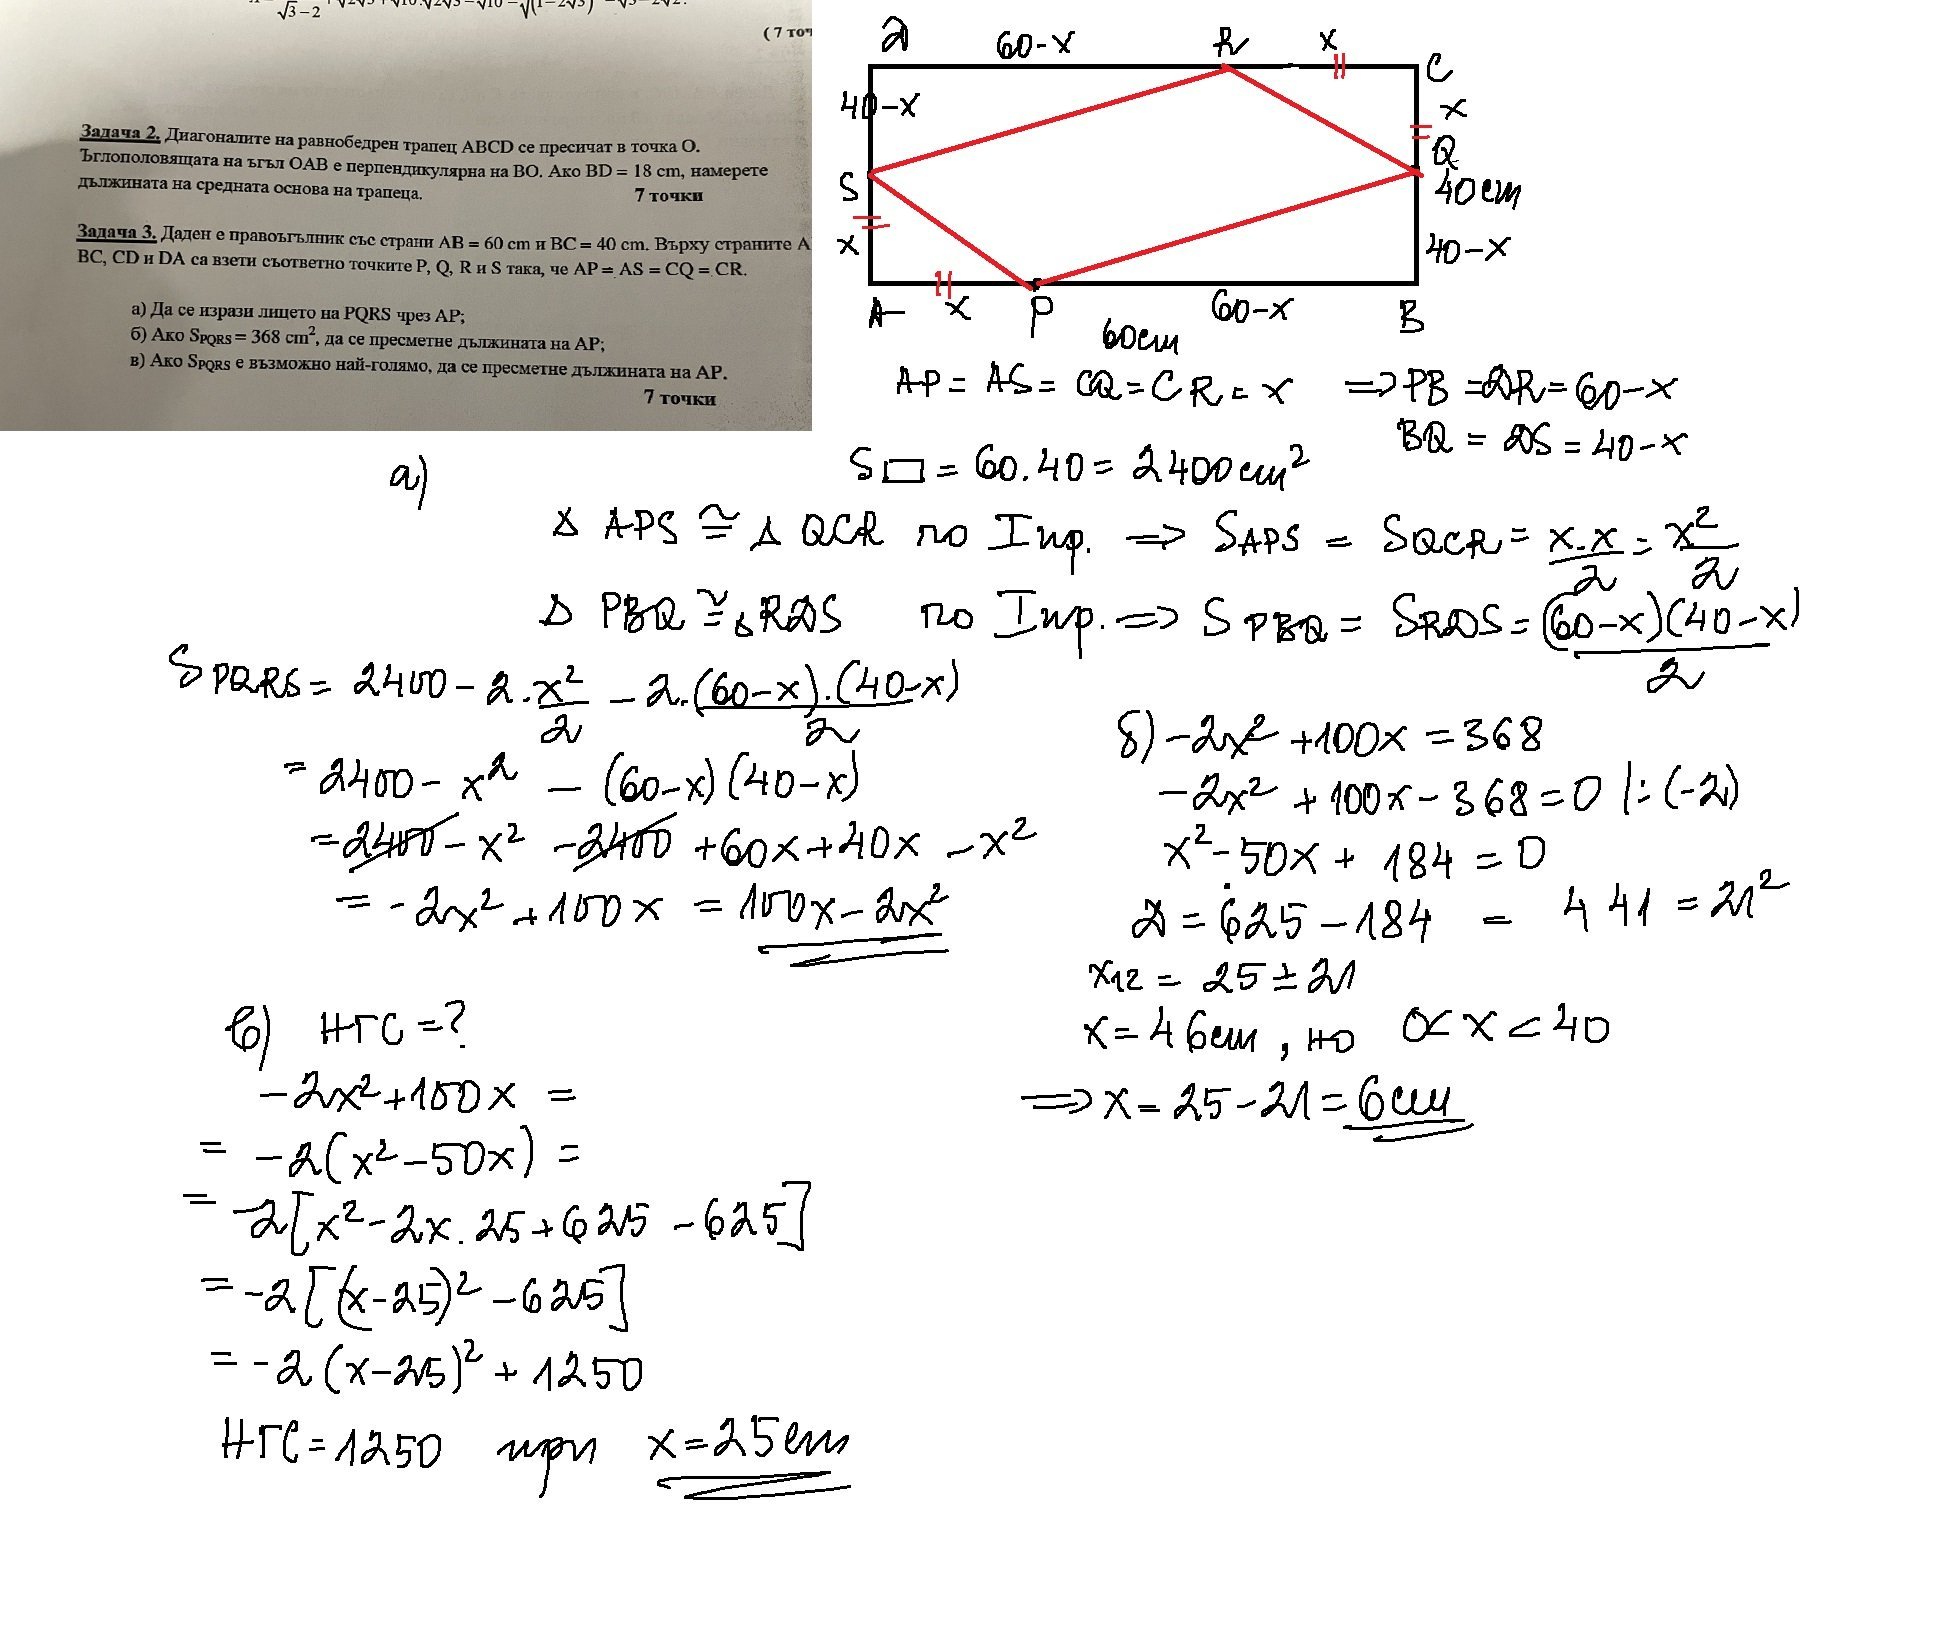 √3−2
( 7 точ
Задача 2. Диагоналите на равнобедрен трапец ABCD се пресичат в точка O.
Ъглополовящата на ъгъл OAB е перпендикулярна на BO. Ако BD = 18 cm, намерете
дължината на средната основа на трапеца. 7 точки
Задача 3. Даден е правоъгълник със страни AB = 60 cm и BC = 40 cm. Върху страните A
BC, CD и DA са взети съответно точките P, Q, R и S така, че AP = AS = CQ = CR.
а) Да се изрази лицето на PQRS чрез AP;
б) Ако S_PQRS = 368 cm², да се пресметне дължината на AP;
в) Ако S_PQRS е възможно най-голямо, да се пресметне дължината на AP.
7 точки
D 60-x R x C
40-x x
Q
S 40cm
x 40-x
A x P 60-x B
60cm
AP = AS = CQ = CR = x ⇒ PB = DR = 60-x
BQ = DS = 40-x
S▭ = 60.40 = 2400cm²
а)
Δ APS ≅ Δ QCR по I пр. ⇒ S_APS = S_QCR = x.x/2 = x²/2
Δ PBQ ≅ Δ RDS по I пр. ⇒ S_PBQ = S_RDS = (60-x)(40-x)/2
S_PQRS = 2400 - 2.x²/2 - 2.(60-x).(40-x)/2
= 2400 - x² - (60-x)(40-x)
= 2400 - x² - 2400 + 60x + 40x - x²
= -2x² + 100x = 100x - 2x²
б) -2x² + 100x = 368
-2x² + 100x - 368 = 0 |: (-2)
x² - 50x + 184 = 0
D = 625 - 184 = 441 = 21²
x₁₂ = 25 ± 21
x = 46cm, но 0 < x < 40
⇒ x = 25 - 21 = 6cm
в) НГС = ?
-2x² + 100x =
= -2(x² - 50x) =
= -2[x² - 2x.25 + 625 - 625]
= -2[(x-25)² - 625]
= -2(x-25)² + 1250
НГС = 1250 при x = 25cm